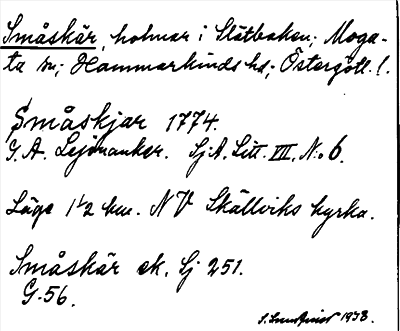 Småskär, holmar i Slätbaken; Moga-
ta sn; Hammarkinds hd; Östergötl. l.
Småskjar 1774.
G. A. Lejonanker. SjA. Litt. VIII. No 6.
Läge 1 1/2 km. NV Skällviks kyrka.
Småskär ek. Sj 251.
G. 56.
1938.